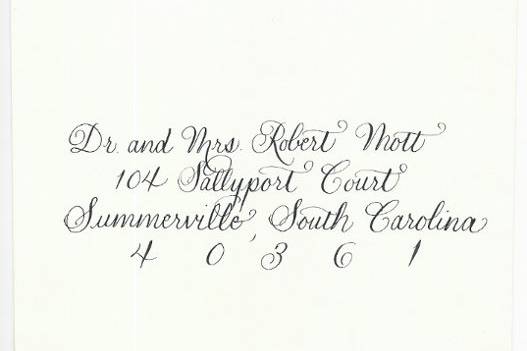 Dr. and Mrs. Robert Mott
104 Sallyport Court
Summerville, South Carolina
4 0 3 6 1